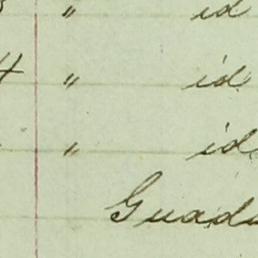 " id
4 " id
" id
Guad